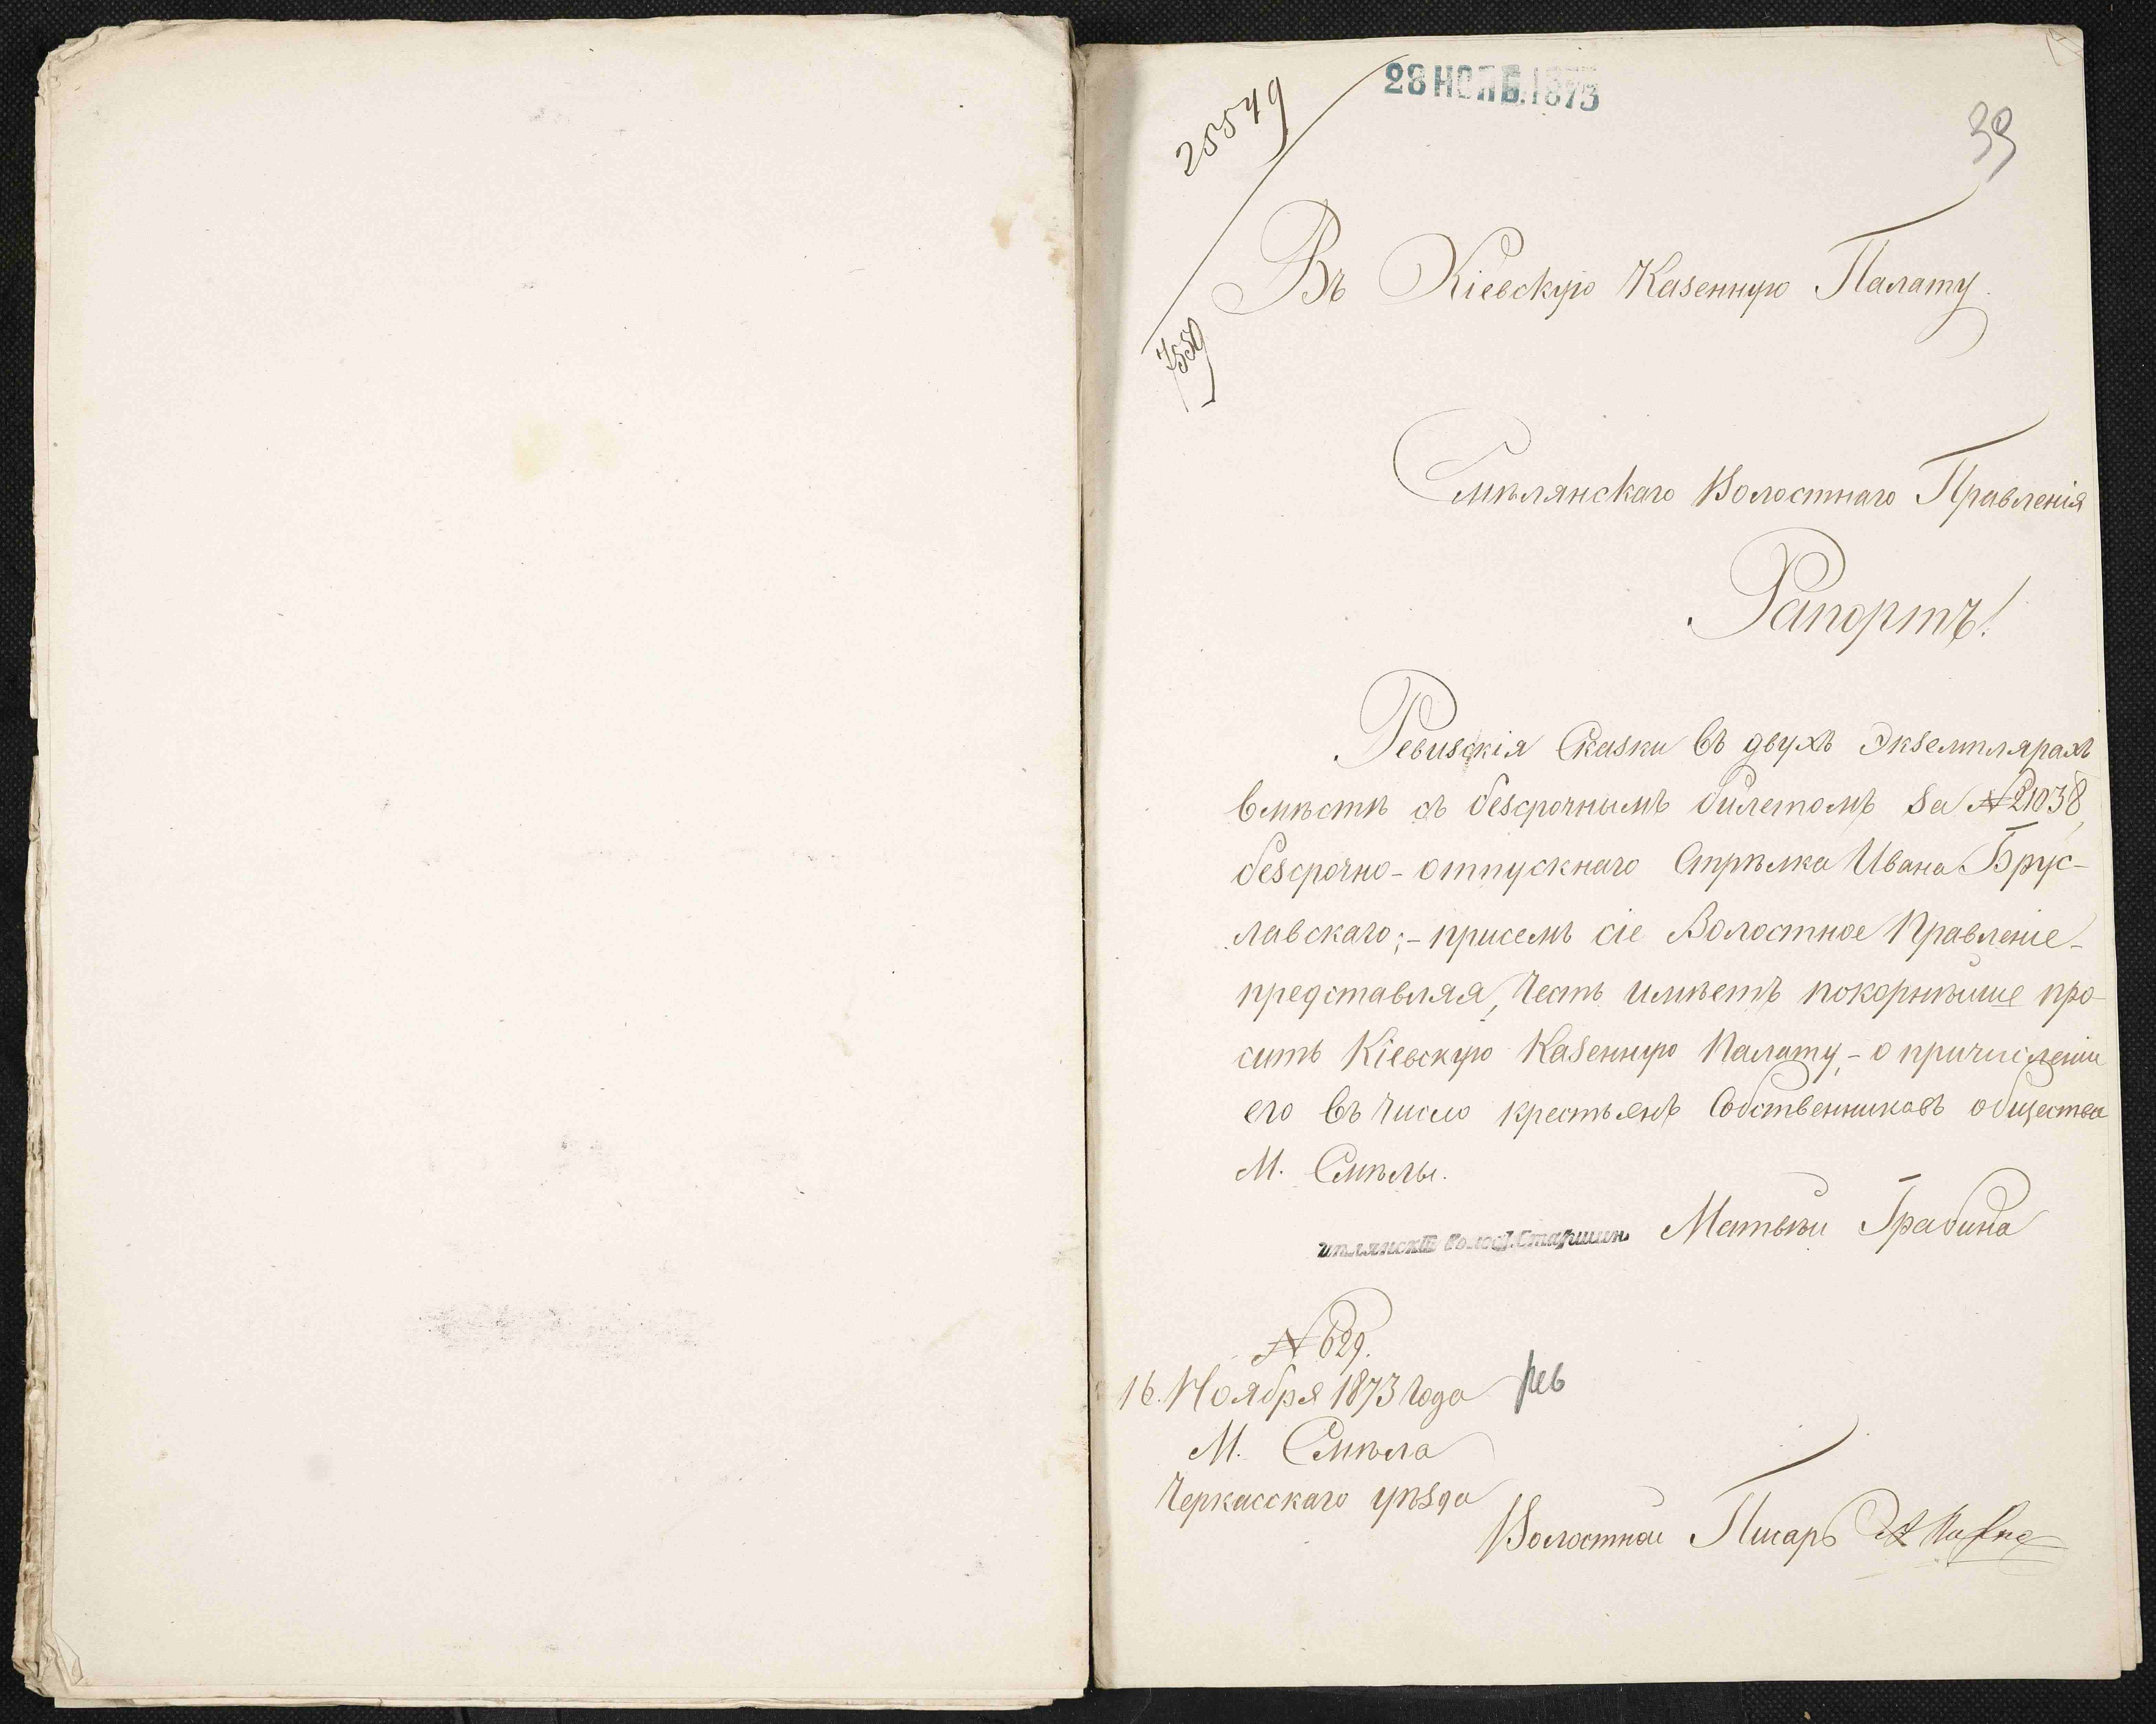 28 НОЯБ. 1873
25549
39
7559
Въ Кіевскую Казенную Палату
Смѣлянскаго Волостнаго Правленія
Рапортъ!
Ревизскія Сказки въ двухъ Экземплярахъ
вмѣстѣ съ безсрочнымъ билетомъ за № 21038,
безсрочно-отпускнаго Стрѣлка Ивана Брус-
лавскаго; - присемъ сіе Волостное Правленіе -
представляя, честь имѣетъ покорнѣйше про-
сить Кіевскую Казенную Палату, - о причисленіи
его въ число крестьянъ Собственниковъ общества
М. Смѣлы.
Волос. Старшин. Матвѣй Грабина
№ 629.
16. Ноября 1873 Года рев
М. Смѣла
Черкасскаго уѣзда
Волостной Писарь